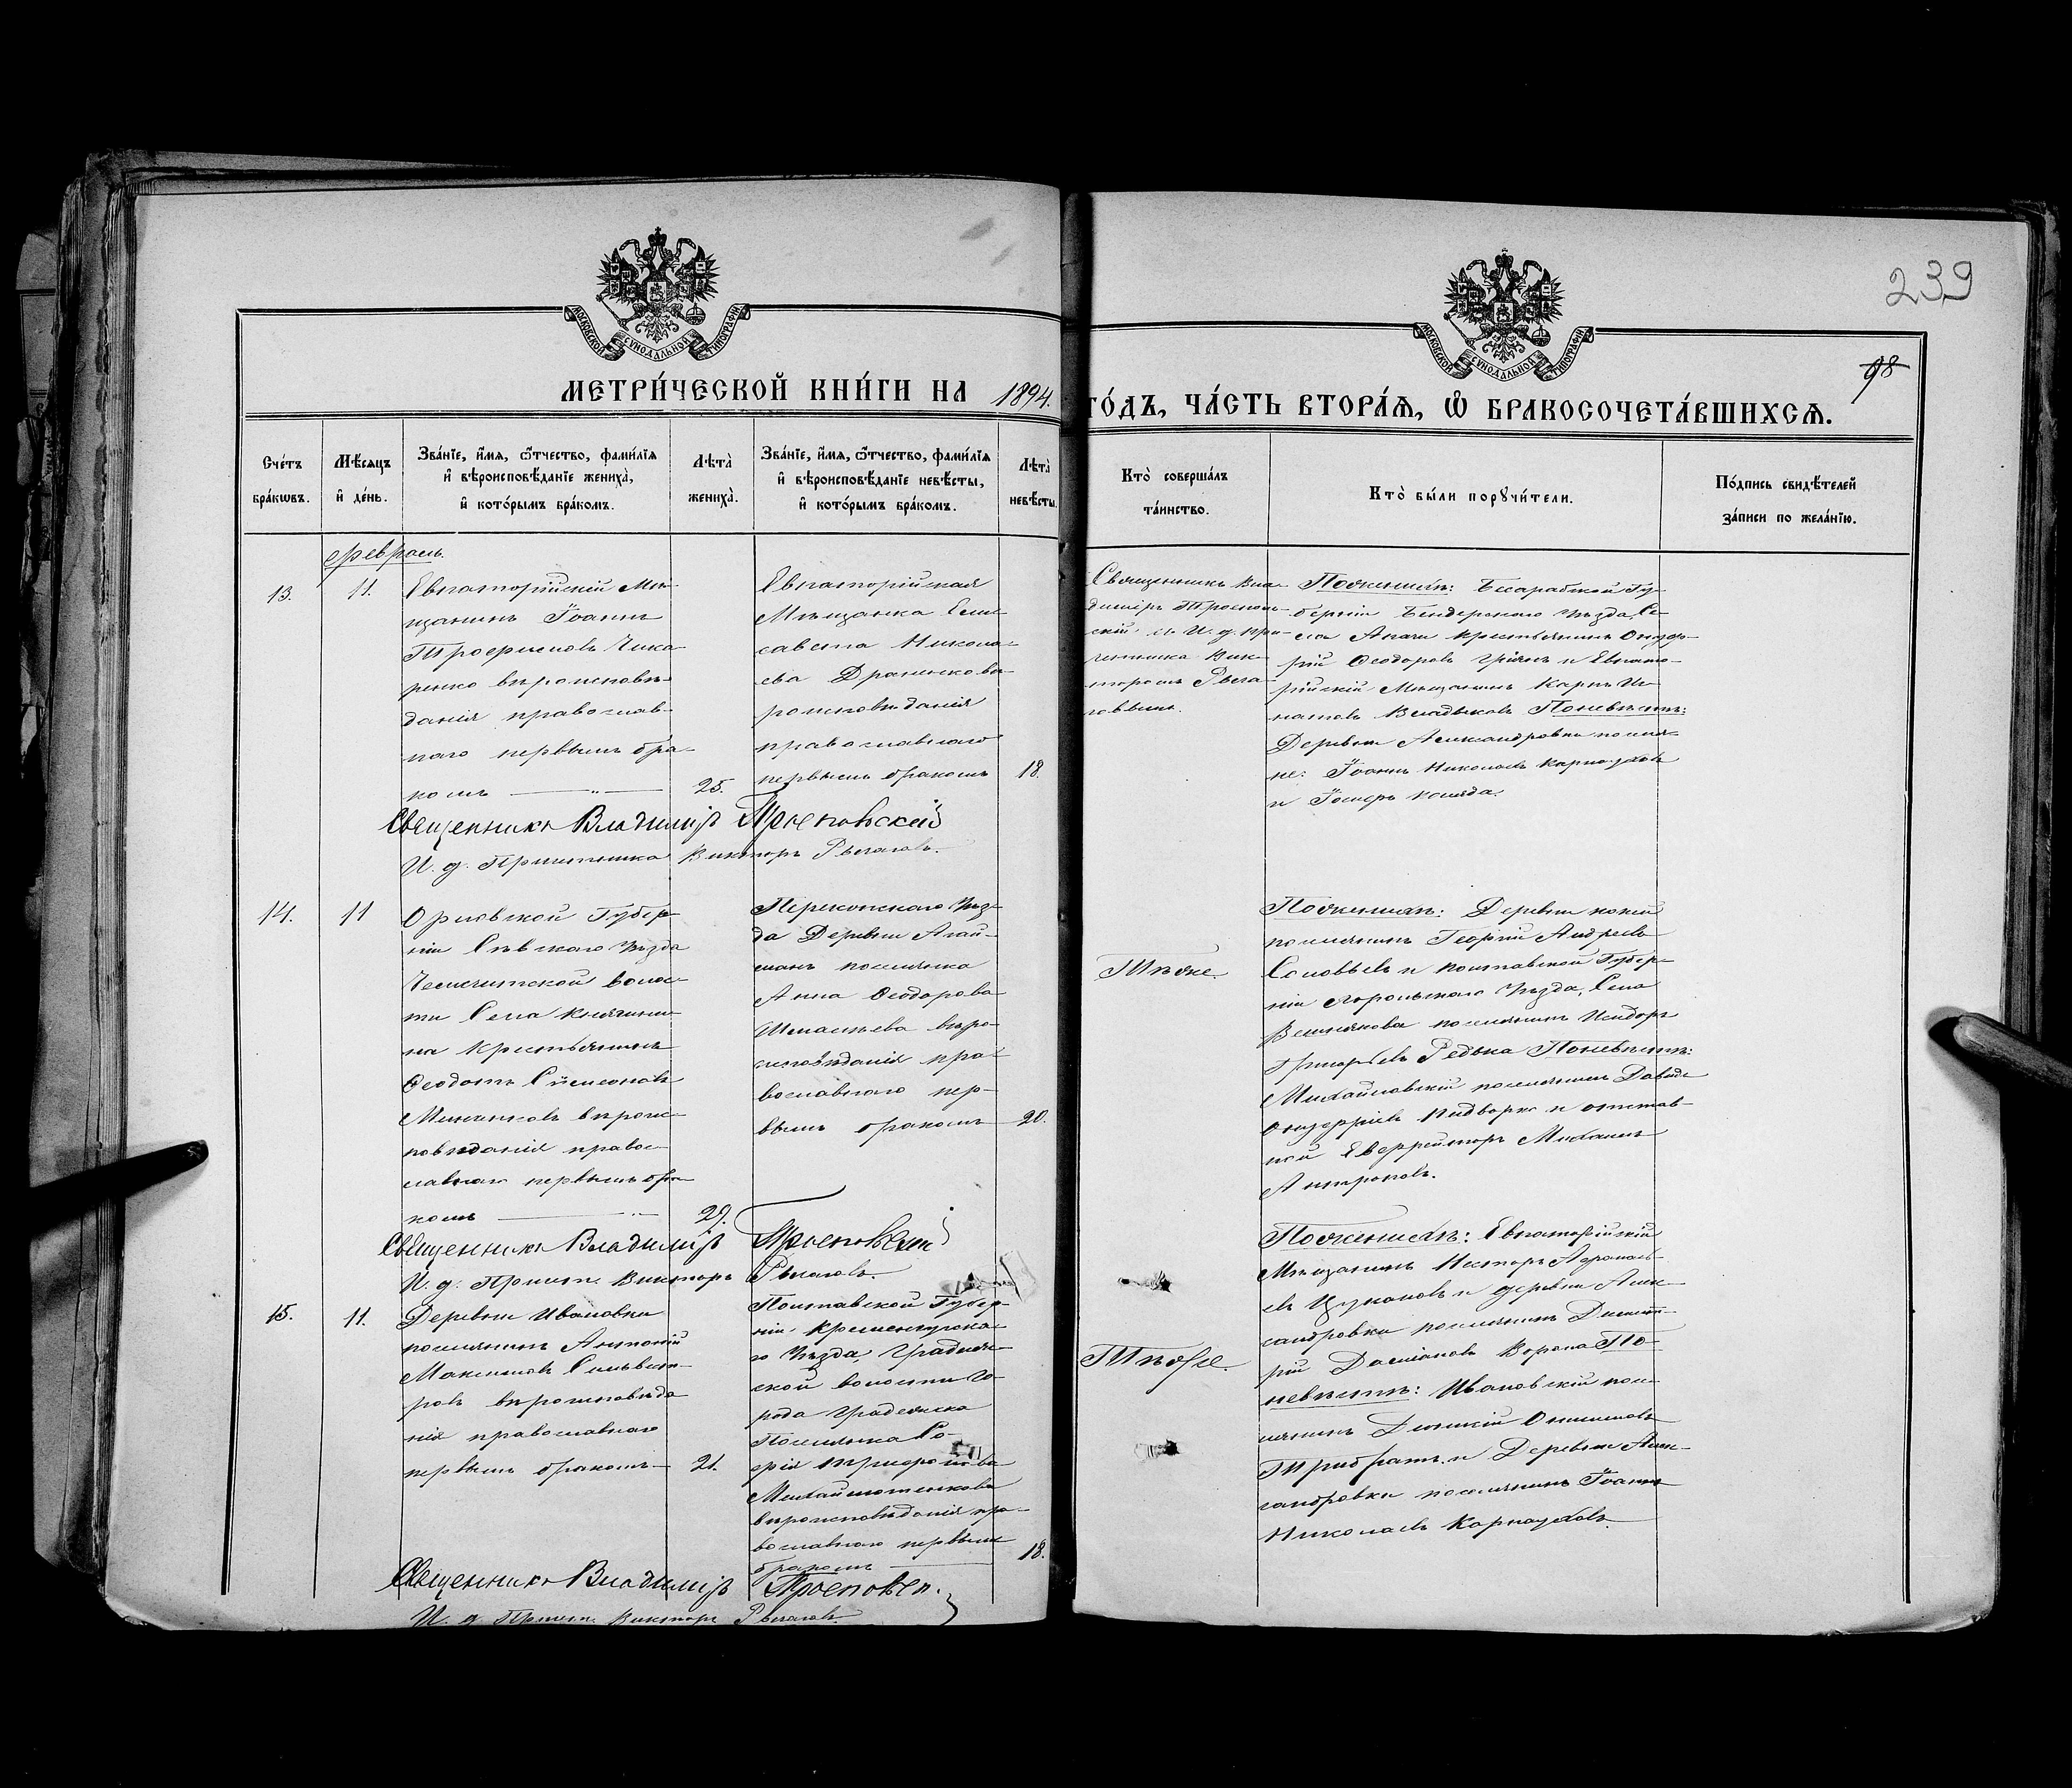 239
98
МЕТРИ́ЧЕСКОЙ КНИ́ГИ НА 1894. ГО́ДЪ, ЧА́СТЬ ВТОРА́Я, Ѡ БРАКОСОЧЕТА́ВШИХСЯ.
Сче́тъ бра́кѡвъ.
Мѣ́сяцъ и҆ де́нь.
Зва́нїе, и҆́мя, ѻ҆́тчество, фами́лїя
и҆ вѣроисповѣ́данїе жениха̀,
и҆ кото́рымъ бра́комъ.
Лѣта̀ жениха̀.
Зва́нїе, и҆́мя, ѻ҆́тчество, фами́лїя
и҆ вѣроисповѣ́данїе невѣ́сты,
и҆ кото́рымъ бра́комъ.
Лѣта̀ невѣ́сты.
Кто̀ соверша́лъ
та́инство.
Кто̀ бы́ли порꙋчи́тели.
По́дпись свидѣ́телей
за́писи по жела́нїю.
Февраль.
13.
11.
Евпаторійскій Мѣ-
щанинъ Іоаннъ
Трофимовъ Чика-
ренко вѣроисповѣ-
данія православ-
наго первымъ бра-
комъ
25.
Евпаторійская
Мѣщанка Ели-
савета Никола-
ева вѣ-
роисповѣданія
православнаго
первымъ бракомъ
18.
Священникъ Вла-
димиръ Троепол-
скій съ И. д. при-
четника Вик-
торомъ
Поженихѣ: Бесарабской Гу-
берніи Бендерскаго уѣзда, Се-
ла крестьянинъ Онуф-
рій Ѳеодоровъ и Евпато-
рійскій Мѣщанинъ Карпъ Иг-
натовъ Поневѣстѣ:
Деревни Александровки поселя-
не: Іоаннъ Николаевъ Карнауховъ
и Іосифъ
Священникъ Владиміръ
И. д. Причетника Викторъ
14.
11
Орловской Губер-
ніи Сѣвскаго уѣзда
волос-
ти Села Княгини-
на Крестьянинъ
Ѳеодотъ
вѣроис-
повѣданія правос-
лавнаго первымъ бра-
комъ
29.
Перекопскаго уѣз-
да Деревни Агай-
манъ поселянка
Анна Ѳеодорова
вѣро-
исповѣданія пра-
вославнаго пер-
вымъ бракомъ
20.
Тѣже.
Поженихѣ: Деревни
поселянинъ Георгій Андреевъ
Соловьевъ и Полтавской Губер-
ніи уѣзда, Села
поселянинъ Исидоръ
Григорьевъ Редька Поневѣстѣ:
Михайловскій поселянинъ Давидъ
Онуфріевъ и отстав-
ной Ефрейторъ Михаилъ
Антоновъ.
Священникъ Владиміръ
И. д. Причетн. Викторъ
15.
11.
Деревни Ивановки
поселянинъ Антоній
Максимовъ Сильвест-
ровъ вѣроисповѣда
нія православнаго
первымъ бракомъ
21.
Полтавской Губер-
ніи Кременчугска-
го уѣзда, Градиж-
ской волости го-
рода Градижска
Поселянка Со-
фія
вѣроисповѣданія пра-
вославнаго первымъ
бракомъ
18.
Тѣже.
Поженихѣ: Евпаторійскій
Мѣщанинъ Несторъ Афанась-
евъ Цукановъ и деревни Алек-
сандровки поселянинъ Димит-
рій Ворона По-
невѣстѣ: Ивановскій посе-
лянинъ Онисимовъ
и Деревни Алек-
сандровки поселянинъ Іоаннъ
Николаевъ Карнауховъ
Священникъ Владиміръ
И. д. Причетн. Викторъ